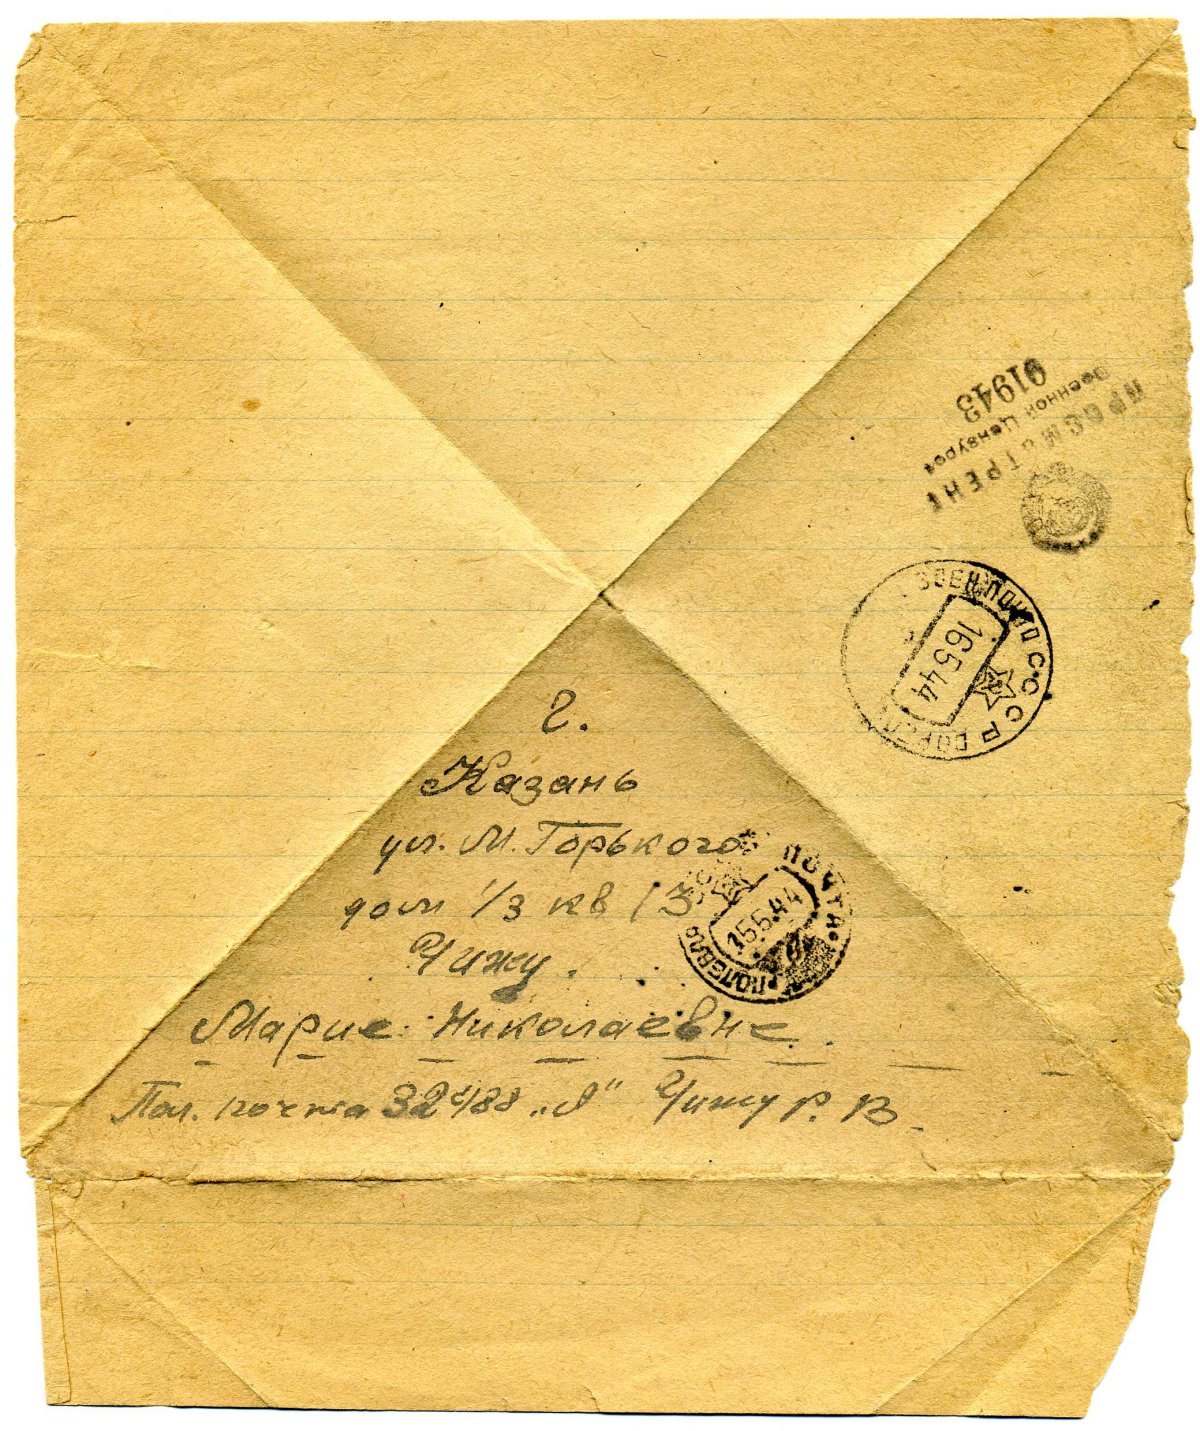 ПРОСМОТРЕНО
Военной Цензурой
01943
ВОЕН. ПОЧТ
СССР
16 5 44
г.
Казань
ул. М. Горького
дом 1/3 кв 13
Чижу.
Марие Николаевне.
ПОЛЕВАЯ ПОЧТА
15 5 44
Пол. почта 32488 „д" Чижу Р. В.